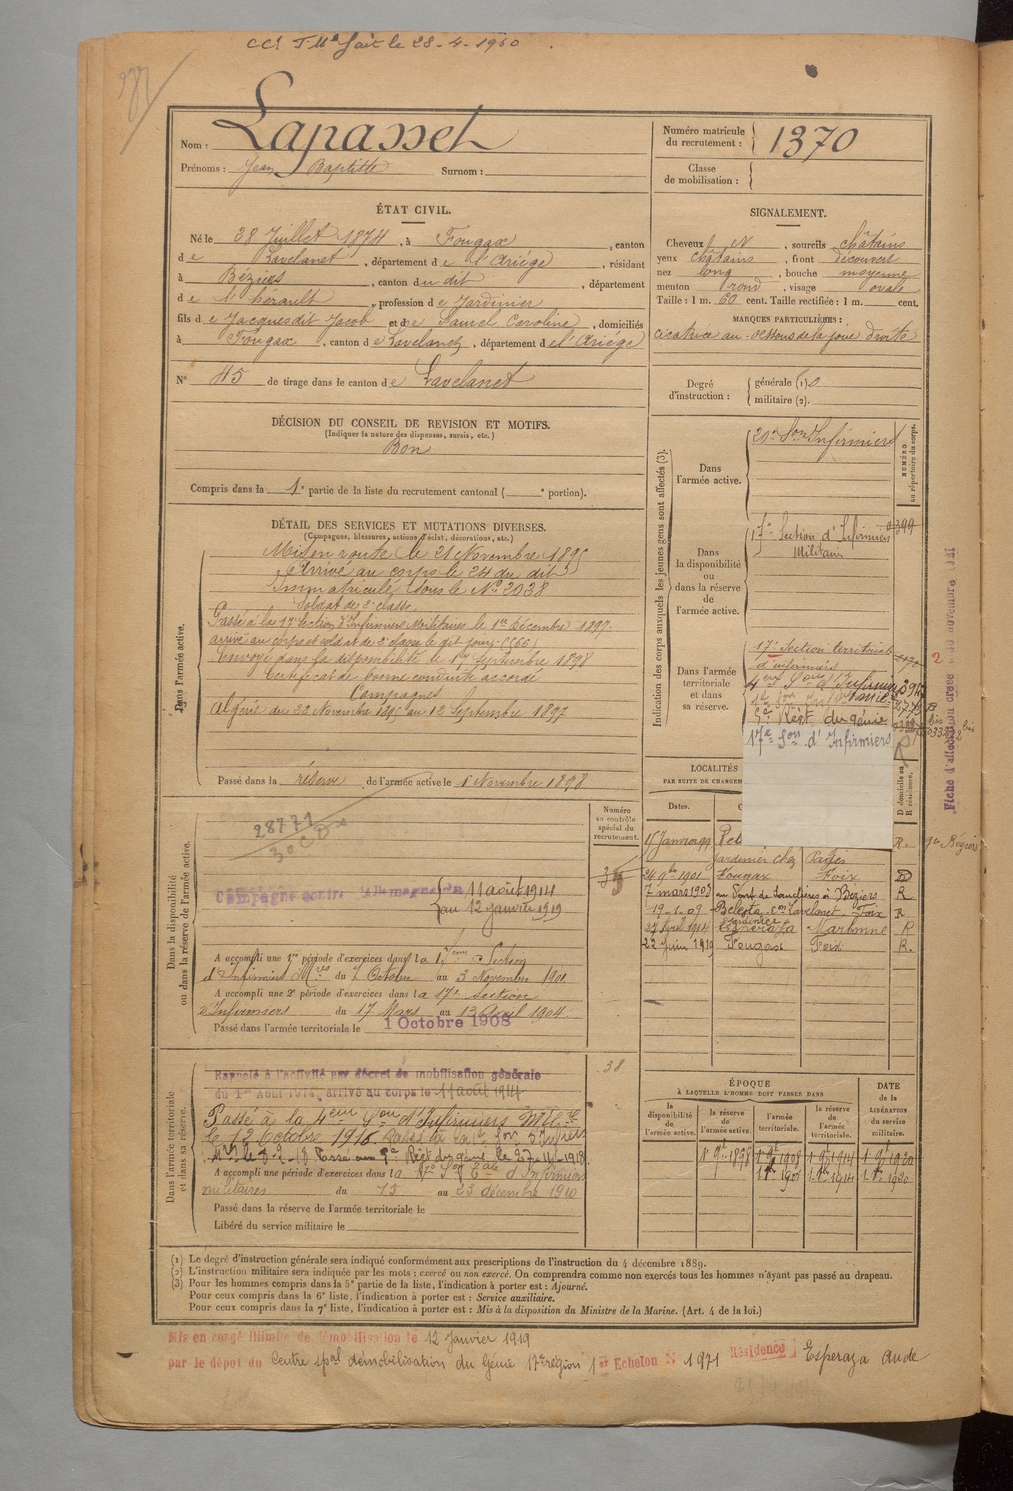 CCI T Me fait le 28-4-1930
Nom : Lapasset
Prénoms : Jean Baptiste Surnom :
Numéro matricule du recrutement : 1370
Classe de mobilisation :
ÉTAT CIVIL.
Né le 28 Juillet 1874, à Fougax, canton
de Lavelanet, département de l'Ariège, résidant
à Béziers, canton du dit, département
de l'hérault, profession de Jardinier
fils de Jacques dit Jacob et de Saurel Caroline, domiciliés
à Fougax, canton de Lavelanet, département de l'Ariège
N° 45 de tirage dans le canton de Lavelanet
SIGNALEMENT.
Cheveux N, sourcils châtains
yeux châtains, front découvert
nez long, bouche moyenne
menton rond, visage ovale
Taille : 1 m. 60 cent. Taille rectifiée : 1 m. cent.
MARQUES PARTICULIÈRES :
cicatrice au-dessous de la joue droite
Degré d'instruction : générale (1) 0
militaire (2).
DÉCISION DU CONSEIL DE REVISION ET MOTIFS.
(Indiquer la nature des dispenses, sursis, etc.)
Bon
Compris dans la 1e partie de la liste du recrutement cantonal ( e portion).
DÉTAIL DES SERVICES ET MUTATIONS DIVERSES.
(Campagnes, blessures, actions d'éclat, décorations, etc.)
Dans l'armée active.
Mis en route le 21 Novembre 1895
Arrivé au corps le 24 du dit
Immatriculé sous le No 2038
Soldat de 2e classe
Passé à la 17e Section d'Infirmiers Militaires le 1er Décembre 1897.
arrivé au corps et soldat de 2e classe le dit jour
Envoyé dans la disponibilité le 1er Septembre 1898
Certificat de bonne conduite accordé
Campagnes
Algérie du 22 Novembre 1895 au 12 Septembre 1897
Passé dans la réserve de l'armée active le 1 Novembre 1898
Indication des corps auxquels les jeunes gens sont affectés (3).
NUMÉRO au répertoire du corps.
Dans l'armée active.
20e Son Infirmiers
Dans la disponibilité ou dans la réserve de l'armée active.
17e Section d'Infirmiers
Militaires
Dans l'armée territoriale et dans sa réserve.
17e Section territoriale
d'infirmiers
4eme Son d'Infirmiers
Régt du génie
17e Son d'Infirmiers
LOCALITÉS
PAR SUITE DE CHANGEM
Dates.
D domicile ou R résidence.
15 Janvier 99
R. Béziers
Jardinier chez Pagès
24 9bre 1901 Fougax Foix D
7 mars 1903 Béziers R
19-1-07 Bélesta con Lavelanet Foix R
Jardinier
27 Avril 1914 Espéraza Narbonne R
22 Juin 1919 Fougax Foix R.
Fiche d'affectation créée
Dans la disponibilité ou dans la réserve de l'armée active.
Numéro au contrôle spécial du recrutement.
28771
Campagne contre l'Allemagne du 11 août 1914
au 12 janvier 1919
A accompli une 1re période d'exercices dans la 17eme Section
d'Infirmiers Mres du 7 Octobre au 3 Novembre 1901
A accompli une 2e période d'exercices dans la 17e section
d'Infirmiers du 17 Mars au 13 Avril 1904
Passé dans l'armée territoriale le 1 Octobre 1908
Dans l'armée territoriale et dans sa réserve.
38
Rappelé à l'activité par décret de mobilisation générale
du 1er Août 1914, arrivé au corps le 11 août 1914
Passé à la 4eme Son d'Infirmiers
le 12 Octobre 1916
Passé au Régt du génie le 27-11-1918.
A accompli une période d'exercices dans la d'Infirmiers
militaires du 15 au 23 décembre 1910
Passé dans la réserve de l'armée territoriale le
Libéré du service militaire le
ÉPOQUE
À LAQUELLE L'HOMME DOIT PASSER DANS
la disponibilité de l'armée active.
la réserve de l'armée active.
l'armée territoriale.
la réserve de l'armée territoriale.
DATE de la LIBÉRATION du service militaire.
1 9bre 1898 1 9bre 1908 1 9bre 1914 1 9bre 1920
1 8bre 1908 1 8bre 1914 1 8bre 1920
(1) Le degré d'instruction générale sera indiqué conformément aux prescriptions de l'instruction du 4 décembre 1889.
(2) L'instruction militaire sera indiquée par les mots : exercé ou non exercé. On comprendra comme non exercés tous les hommes n'ayant pas passé au drapeau.
(3) Pour les hommes compris dans la 5e partie de la liste, l'indication à porter est : Ajourné.
Pour ceux compris dans la 6e liste, l'indication à porter est : Service auxiliaire.
Pour ceux compris dans la 7e liste, l'indication à porter est : Mis à la disposition du Ministre de la Marine. (Art. 4 de la loi.)
Mis en congé illimité de démobilisation le 12 Janvier 1919
par le dépôt du Centre spal démobilisation du Génie 17e région 1er Echelon N 1971 Résidence Esperaza Aude